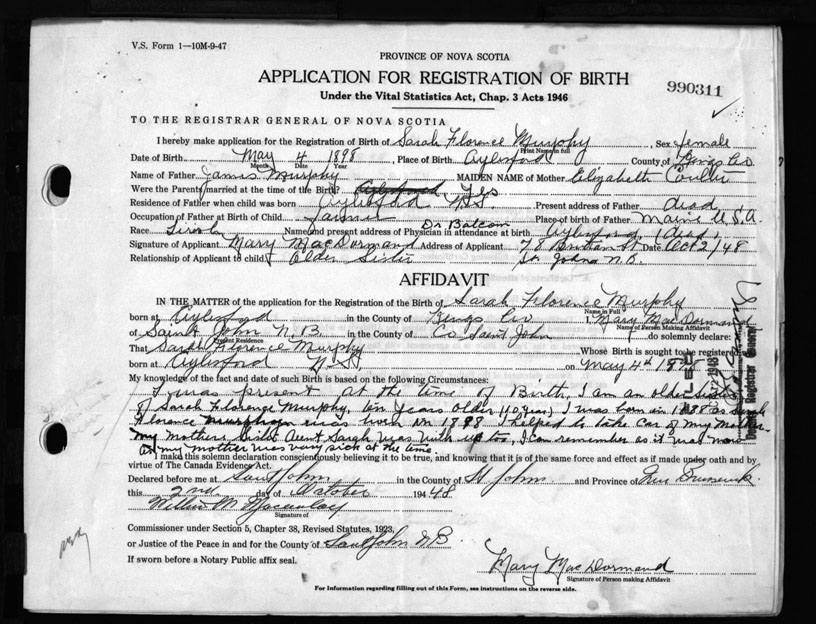 V.S. Form 1—10M-9-47
PROVINCE OF NOVA SCOTIA
APPLICATION FOR REGISTRATION OF BIRTH
990311
Under the Vital Statistics Act, Chap. 3 Acts 1946
TO THE REGISTRAR GENERAL OF NOVA SCOTIA
I hereby make application for the Registration of Birth of Sarah Florence Murphy Sex female
Print Name in full
Date of Birth May 4 1898, Place of Birth Aylesford County of Kings Co
Month Date Year
Name of Father James Murphy MAIDEN NAME of Mother Elizabeth Coulter
Were the Parents married at the time of the Birth? Yes
Residence of Father when child was born Aylesford N.S. Present address of Father dead
Occupation of Father at Birth of Child farmer Place of birth of Father Maine U.S.A.
Race Name and present address of Physician in attendance at birth Dr Balcom Aylesford (dead)
Signature of Applicant Mary MacDormand Address of Applicant 78 St Date Oct 2/48
Relationship of Applicant to child Older Sister St. Johns N.B.
AFFIDAVIT
IN THE MATTER of the application for the Registration of the Birth of Sarah Florence Murphy
Name in Full
born at Aylesford in the County of Kings Co I, Mary MacDormand
Name of Person Making Affidavit
of Saint John N.B in the County of Co Saint John do solemnly declare:
Present Residence
That Sarah Florence Murphy Whose Birth is sought to be registered
born at Aylesford N.S. on May 4th 1898
My knowledge of the fact and date of such Birth is based on the following Circumstances:
I was present at the time of Birth, I am an older sister
of Sarah Florence Murphy, ten years older (10 years) I was born in 1888 as Sarah
Florence Murphy was born in 1898 I helped to take car of my Mother
my mothers Sister Aunt Sarah was with us too, I can remember as if it was now
as my mother was very sick at the time.
I make this solemn declaration conscientiously believing it to be true, and knowing that it is of the same force and effect as if made under oath and by
virtue of The Canada Evidence Act.
Declared before me at Saint John in the County of St John and Province of New Brunswick
this 2nd day of October 1948
Signature of
Commissioner under Section 5, Chapter 38, Revised Statutes, 1923,
or Justice of the Peace in and for the County of Saint John N B.
If sworn before a Notary Public affix seal.
Mary MacDormand
Signature of Person making Affidavit
For Information regarding filling out of this Form, see instructions on the reverse side.